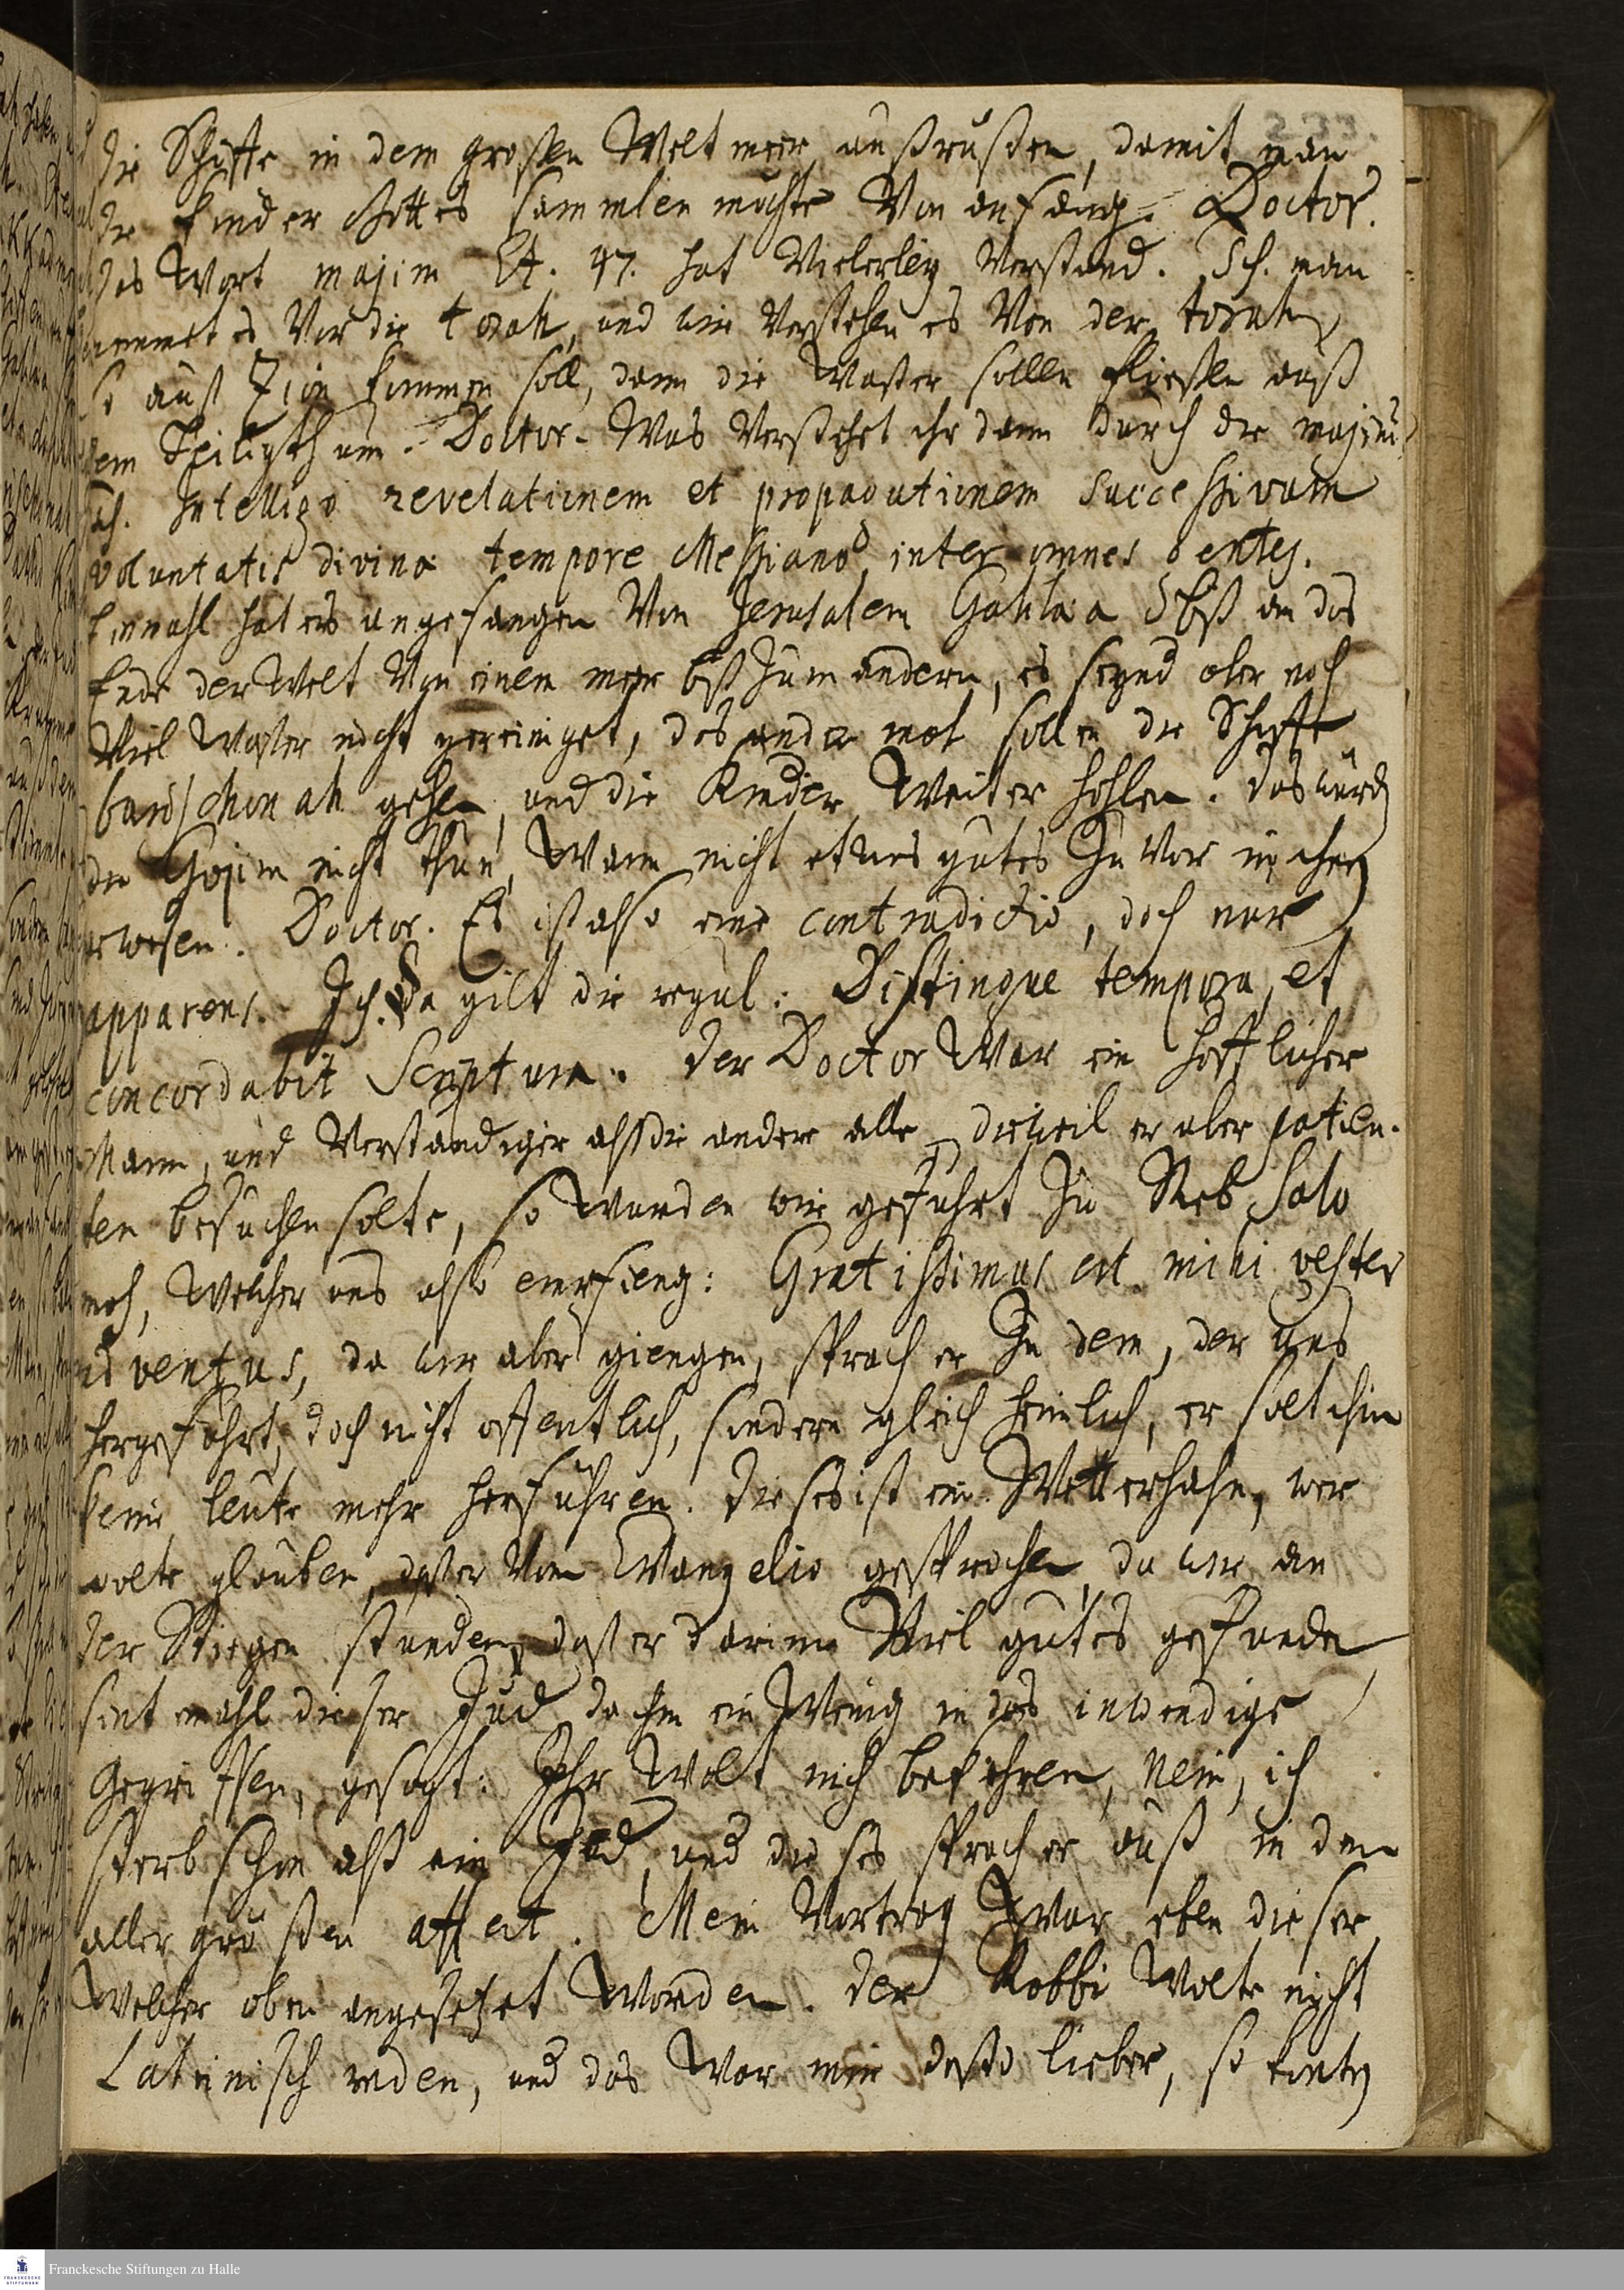 233.
die Schiffe in dem grosen Welt meer außrüsten, damit man
die kinder Gottes sammlen möchte Von anfang. Doctor.
das Wort majim Et. 47. hat Vielerley Verstand. Ich. man
nennet es Vor die torah, und wir Verstehen es Von der torah,
so auß Zion kommen soll, dann die Waßer sollen fließen auß
dem Heiligthum. Doctor. Was Verstehet ihr dann durch die majim?
Ich. Intelligo revelationem et propagationem successivam
voluntatis divinæ tempore Messiano inter omnes Gentes.
Einmahl hat es angefangen Von Jerusalem Galilæa biß an das
Ende der Welt Von einem meer biß zum andern, es seynd aber noch
Viel Waßer nicht gereiniget, das ander mal sollen die Schiffe
barischonah gehen, und die Kinder Weiter hohlen. das würd
die Gojim nicht thun, Wann nicht etwas gutes zu Vor in ihnen
gewesen. Doctor. Es ist also eine contradictio, doch nur
apparens. Ich. Da gilt die regul: Distinque tempora, et
concordabit Scriptura. der Doctor War ein höfflicher
Mann, und Verständiger alß die andere alle, dieweil er aber patien-
ten besuchen solte, so wurden wir geführt zu Reb Salo
moh, Welcher uns also empfieng: Gratissimus est mihi vester
adventus, da wir aber giengen, sprach er zu dem, der uns
hergeführt, doch nicht offentlich, sondern gleich heimlich, er solt ihm
keine leute mehr herführen. dieses ist ein Wetterhahn, wer
wolte glauben, daß er Vom Evangelio gesprochen, da wir an
der Stiegen stunden, daß er darinn Viel gutes gefunden
sintemahl dieser Jud da ihm ein Wenig in das inwendige
Gegriffen, gesagt: Ihr Wolt mich bekehren, Nein, ich
sterb schon alß ein Jud, und dieses sprach er auß in dem
aller grösten affect. Mein Vortrag Zwar eben dieser
Welcher oben angesetzet Worden. der Rabbi Wolte nicht
Lateinisch reden, und das War mir desto lieber, so konten
Franckesche Stiftungen zu Halle
FRANCKESCHE
STIFTUNGEN